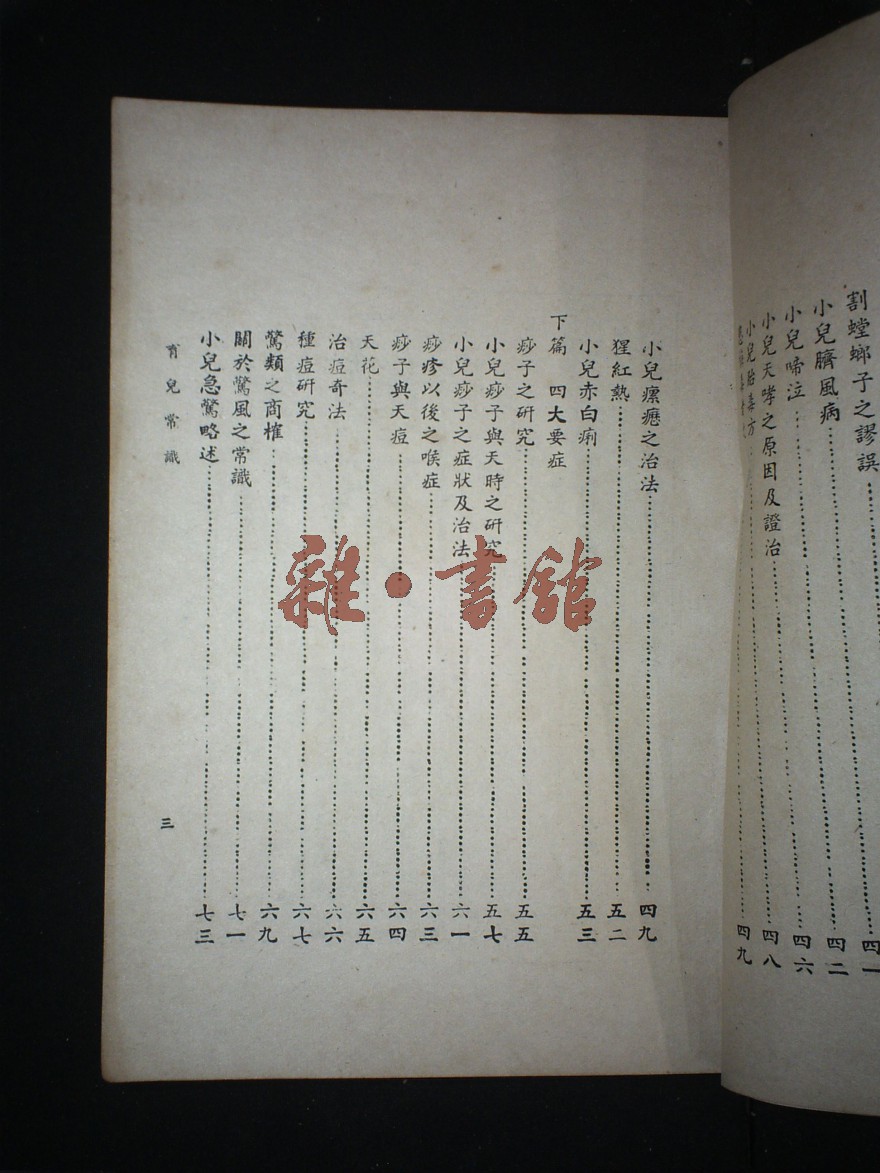 割螳螂子之謬誤……四一
小兒臍風病……四二
小兒啼泣……四六
小兒天哮之原因及證治……四八
小兒胎毒方……四九
小兒瘰癧之治法……四九
猩紅熱……五二
小兒赤白痢……五三
下篇 四大要症
痧子之研究……五五
小兒痧子與天時之研究……五七
小兒痧子之症狀及治法……六一
痧疹以後之喉症……六三
痧子與天痘……六四
天花……六五
治痘奇法……六六
種痘研究……六七
驚類之商榷……六九
關於驚風之常識……七一
小兒急驚略述……七三
育兒常識
三
雜·書館